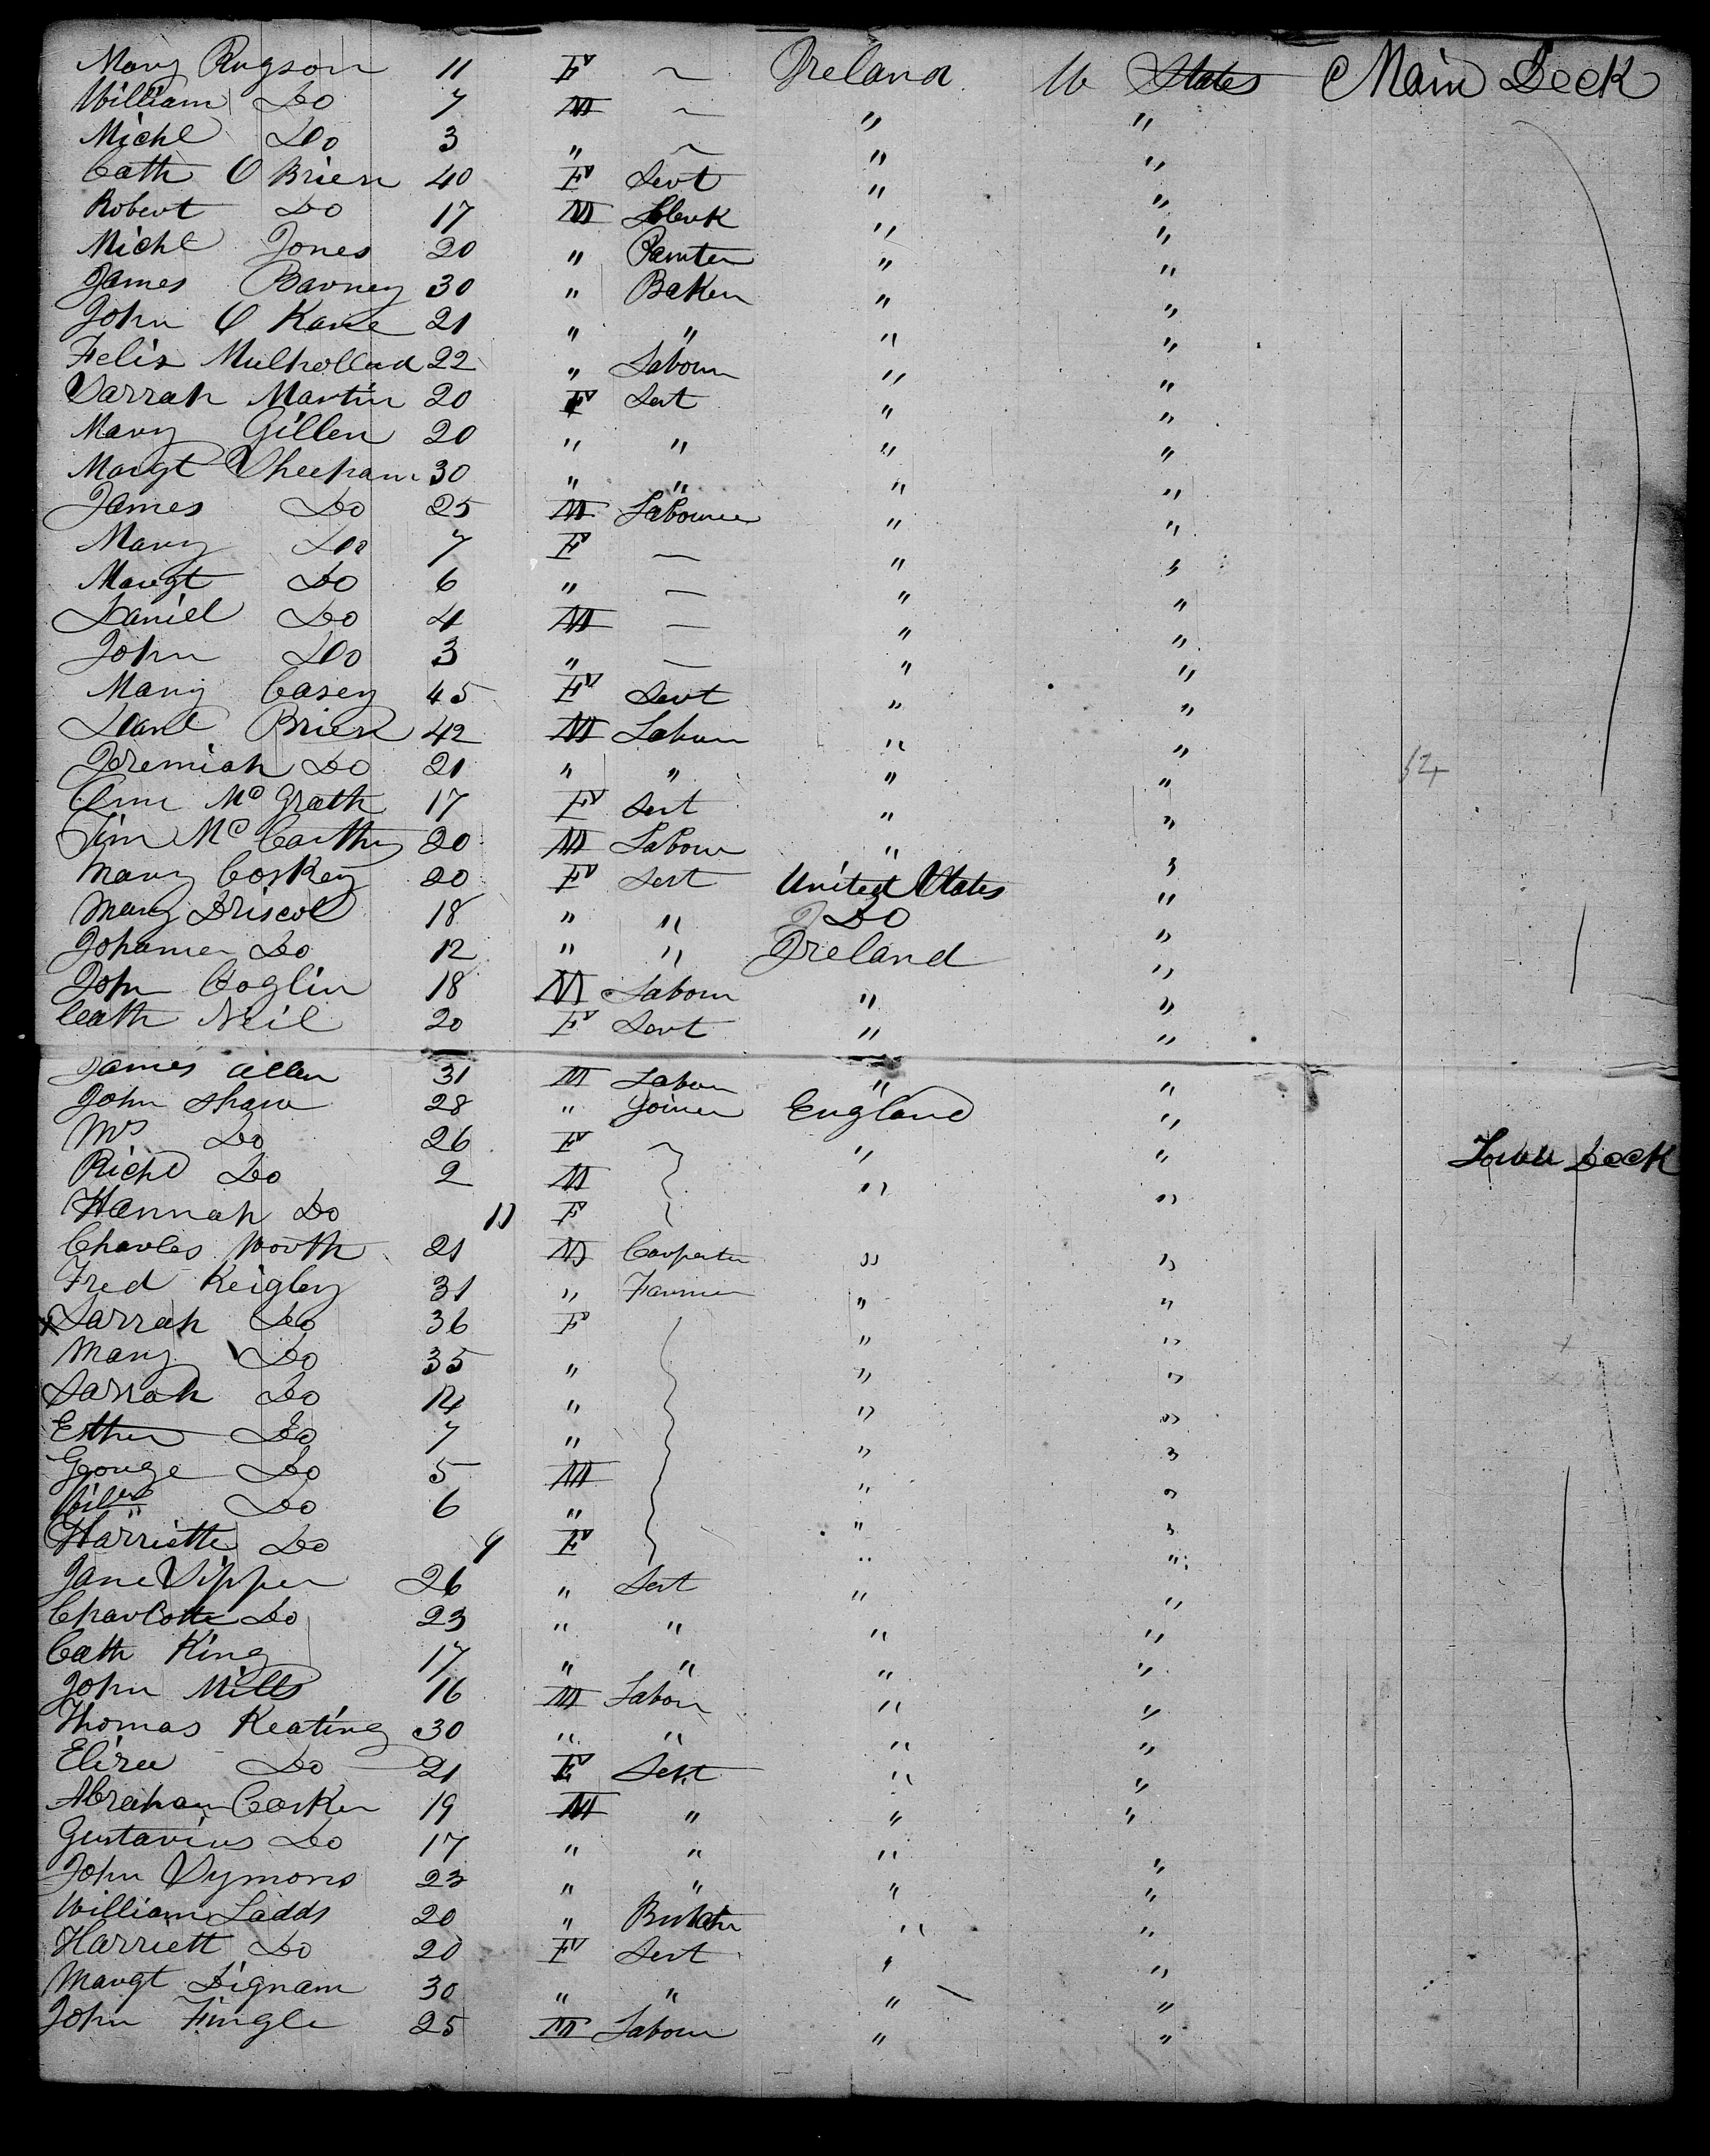 Mary Rugson 11 F ~ Ireland U States Main Deck
William Do 7 M ~ " "
Michl Do 3 " ~ " "
Cath O Brien 40 F Sevt " "
Robert Do 17 M Clerk " "
Michl Jones 20 " Painter " "
James Barney 30 " Baker " "
John O Kane 21 " " " "
Felix Mulholland 22 " Labour " "
Sarrah Martin 20 F Sert " "
Mary Gillen 20 " " " "
Margt Sheeham 30 " " " "
James Do 25 M Labourer " "
Mary Do 7 F — " "
Margt Do 6 " — " "
Daniel Do 4 M — " "
John Do 3 " — " "
Mary Casey 45 F Sevt " "
Danl Brien 42 M Labour " "
Jeremiah Do 21 " " " "
Ann Mc Grath 17 F Sert " "
Tim Mc Carthy 20 M Labour " "
Mary Coskey 20 F Sert United States "
Mary Driscol 18 " " Do "
Johanna Do 12 " " Ireland "
John Coglin 18 M Labour " "
Cath Neil 20 F Sevt " "
James Allen 31 M Labour " "
John Shaw 28 " Joiner England "
Mrs Do 26 F " " Lower Deck
Richd Do 2 M " "
Hannah Do 11 F
Charles Worth 21 M Carpenter " "
Fred Keigley 31 " Farmer " "
x Sarrah Do 36 F " "
Mary Do 35 " " "
Sarrah Do 14 " " "
Esther Do 7 " " "
George Do 5 M " "
Willm Do 6 " " "
Harriette Do 9 F " "
Jane Sipper 26 " Sert " "
Charlotte Do 23 " " " "
Cath King 17 " " " "
John Mills 16 M Labour " "
Thomas Keating 30 " " " "
Eliza Do 21 F Sert " "
Abraham Casker 19 M " " "
Gustavius Do 17 " " "
John Symons 23 " " " "
William Ladds 20 " Butcher " "
Harriett Do 20 F Sert " "
Margt Dignam 30 " " " "
John Fingle 25 M Labour " "